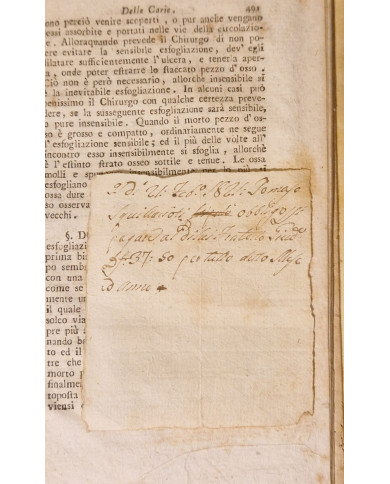 Delle Carie. 491
ono perciò venire scoperti, o pur anche vengano
essi assorbite e portati nelle vie della circolazio-
ne. Alloraquando prevede il Chirurgo di non po-
ere evitare la sensibile esfogliazione, dev' egli
dilatare sufficientemente l'ulcera, e tenerla aper-
a, onde poter estrarre lo staccato pezzo d'osso.
Ciò non è però necessario, allorchè insensibile si
è la inevitabile esfogliazione. In alcuni casi può
enissimo il Chirurgo con qualche certezza preve-
dere, se la susseguente esfogliazione sarà sensibile,
o pure insensibile. Quando il morto pezzo d'os-
o è grosso e compatto, ordinariamente ne segue
l'esfogliazione sensibile; ed il più delle volte all'
incontro esso insensibilmente si sfoglia, allorchè
è l'estinto strato osseo sottile e tenue. Le ossa
molli e
esfogliano
ossa dure
so osserva
vecchi.
§. D
esfogliazi
prima bi
po semb
con una
come se
mente un
il quale
solco via
pre più a
nando bo
to ed il
tre che
morto p
finalmen
toposta
viensi
obligo
pagare
37: 50 per tutto detto Mese